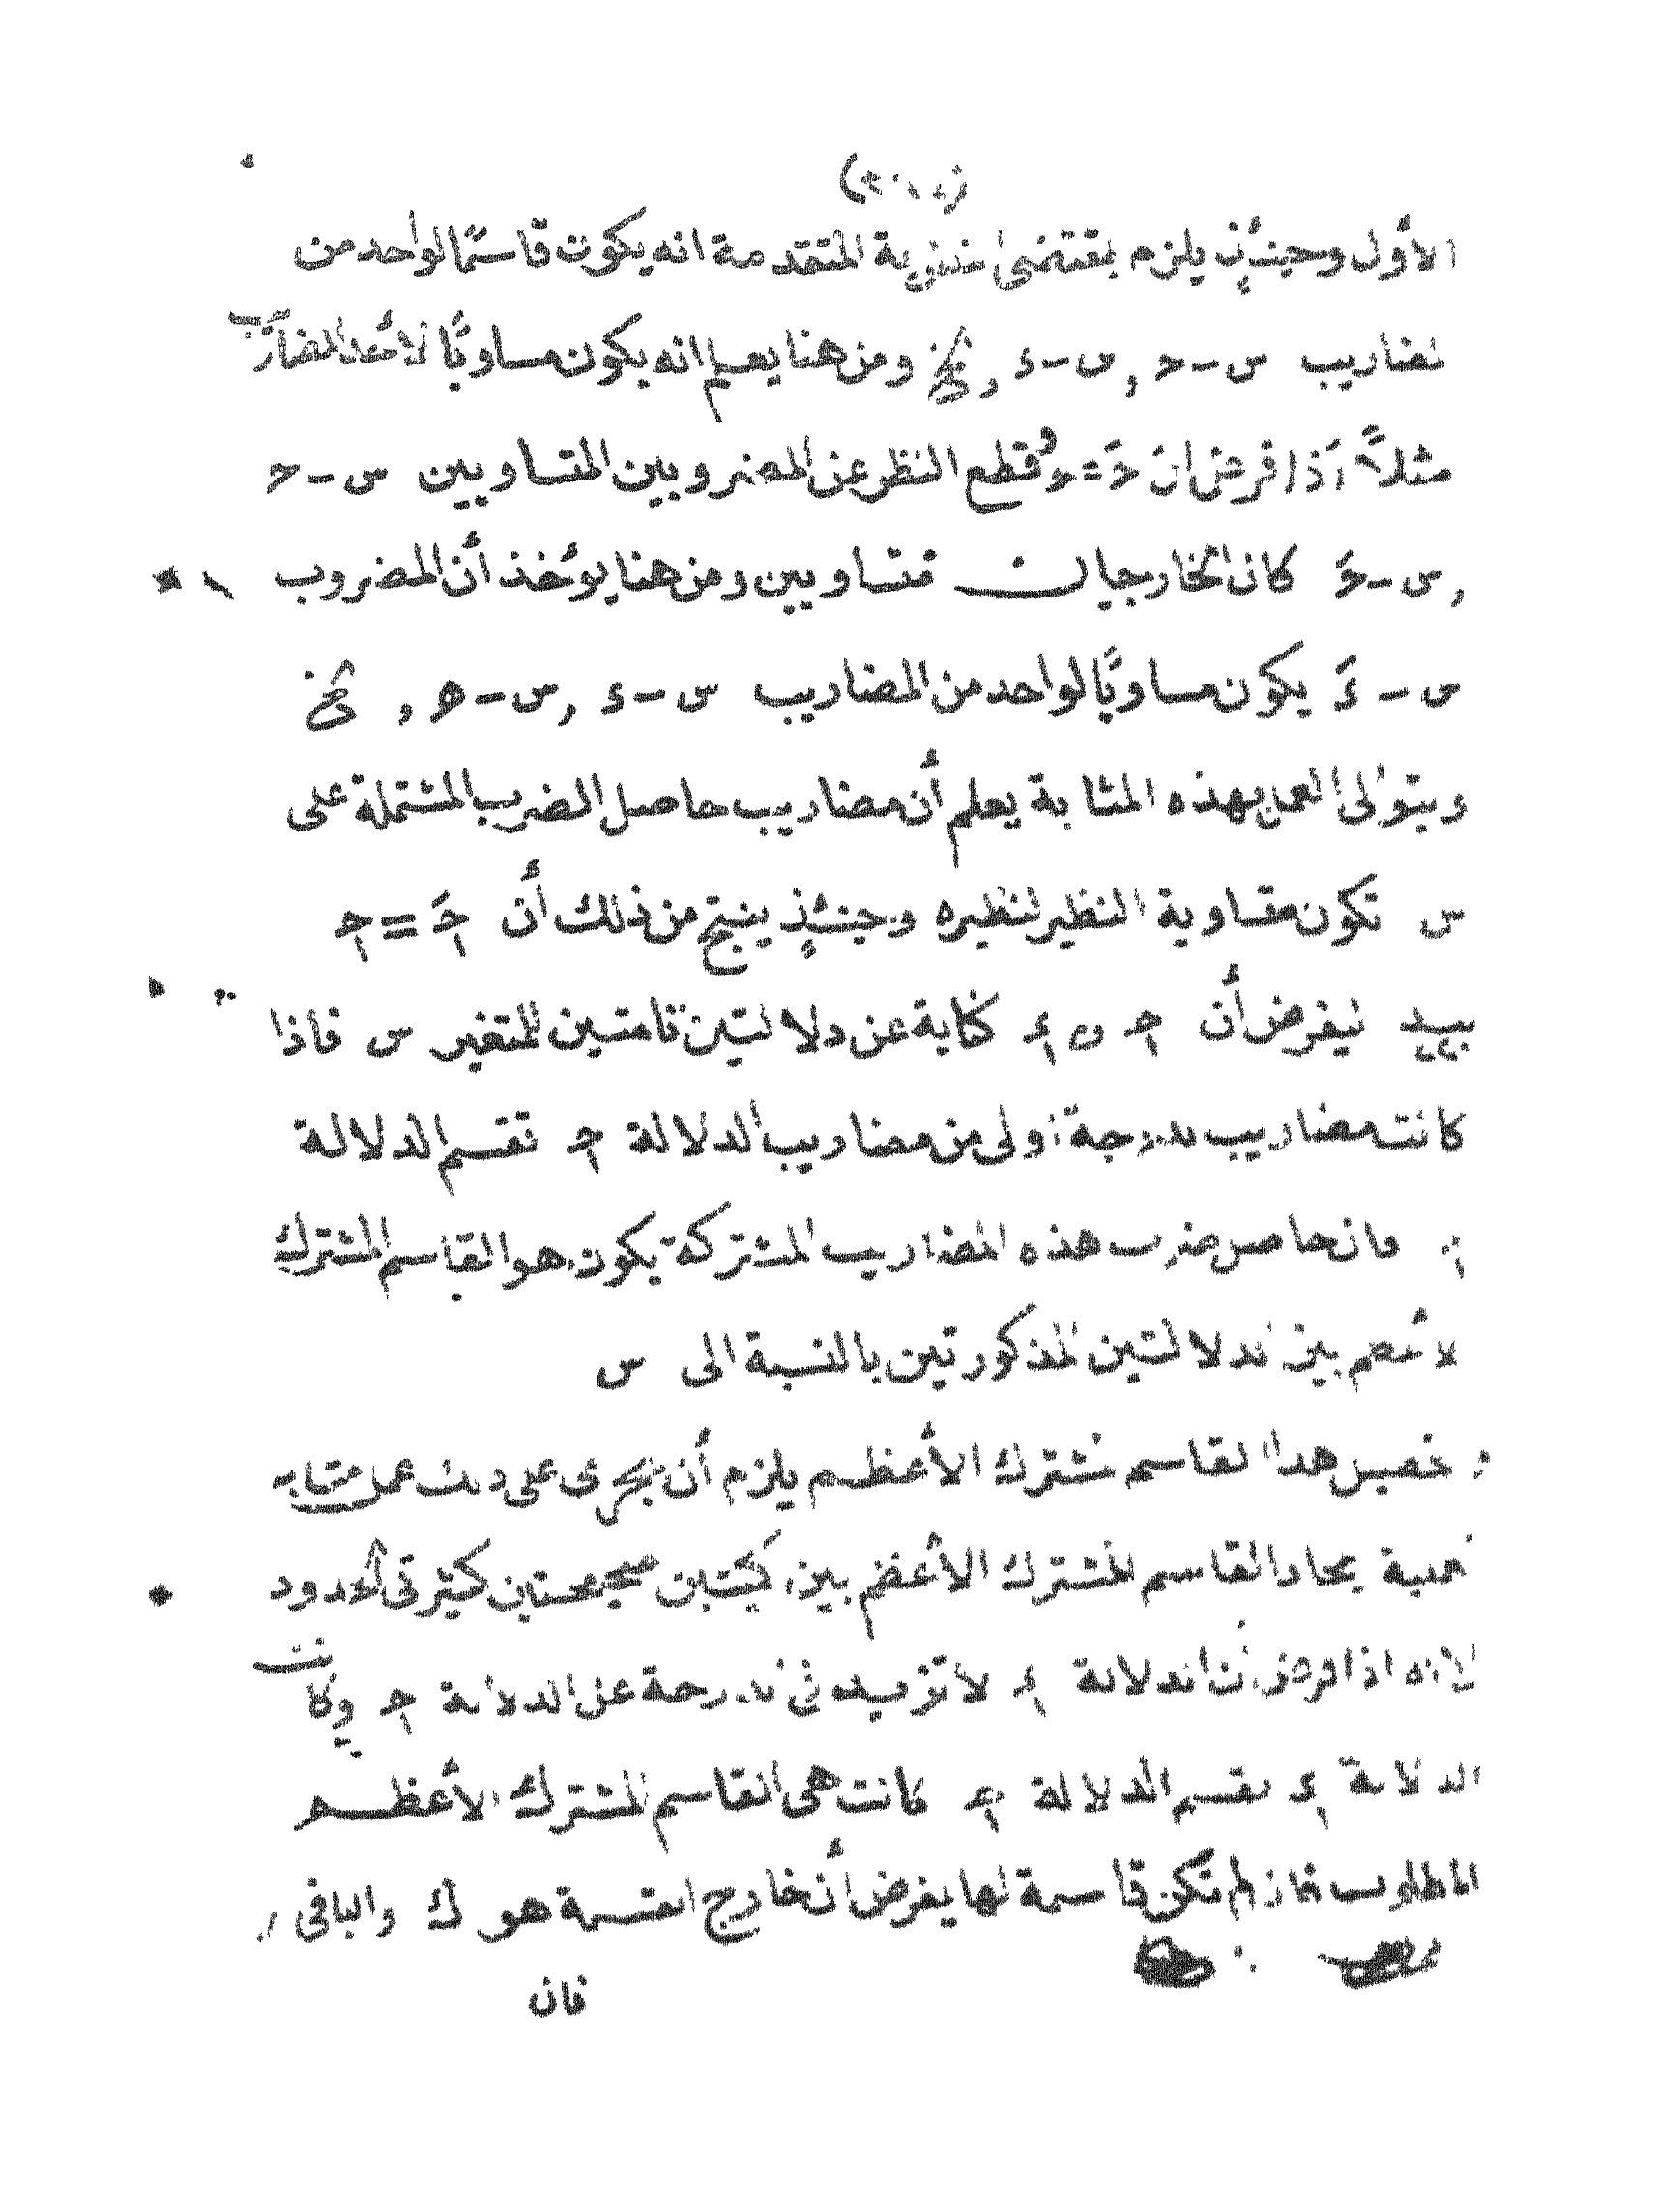 الأول وحينئذٍ يلزم بمقتضى النظرية المتقدمة انه يكون قاسمًا لواحد من
مضاريب س - حـ , س - ء , الخ ومن هنا يعلم انه يكون مساويًا لأحد المضاريب
مثلاً اذا فرض ان حَـ = حـ وقطع النظر عن المضروبين المتساويين س - حـ
, س - حَـ كان الخارجان متساويين ومن هنا يؤخذ أن المضروب
س - ءَ يكون مساويًا لواحد من المضاريب س - ء , س - هـ , الخ
وبتوالى العمل بهذه المثابة يعلم أن مضاريب حاصل الضرب المشتملة على
س تكون مساوية النظير لنظيره وحينئذٍ ينتج من ذلك أن حَـ = حـ
ليفرض أن حـ و ء كناية عن دلالتين تامتين للمتغير س فاذا
كانت مضاريب بدرجة أولى من مضاريب الدلالة حـ تقسم الدلالة
ء فان حاصل ضرب هذه المضاريب المشتركة يكون هو القاسم المشترك
الأعظم بين الدلالتين المذكورتين بالنسبة الى س
هذا القاسم المشترك الأعظم يلزم أن يجرى على ذلك عمل مشابه
لعملية ايجاد القاسم المشترك الأعظم بين كميتين صحيحتين كثيرتى الحدود
لانه اذا فرض أن الدلالة ء لا تزيد فى الدرجة عن الدلالة حـ وكانت
الدلالة ء تقسم الدلالة حـ كانت هى القاسم المشترك الأعظم
المطلوب فان لم تكن قاسمة لها يفرض أن خارج القسمة هو ك والباقى ر
فان